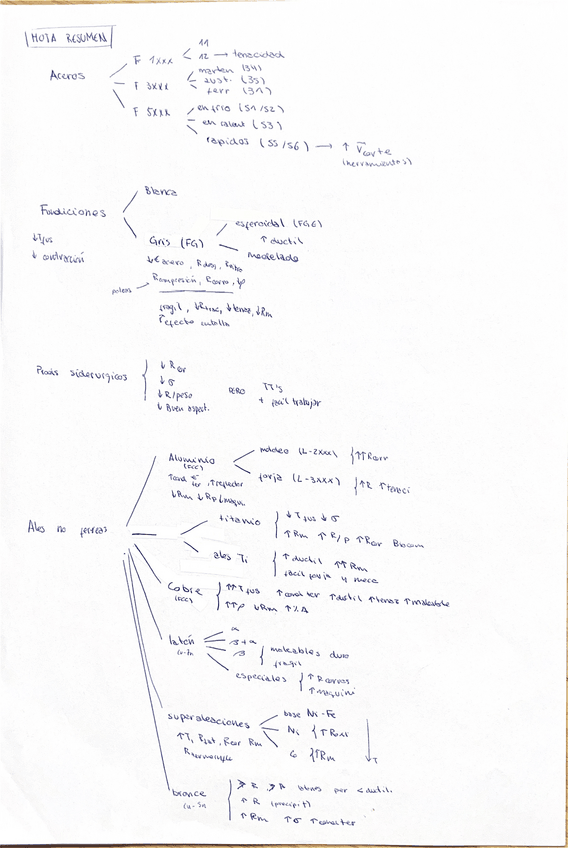 HOJA RESUMEN
Aceros
F 1xxx
11
12 → tenacidad
F 3xxx
marten (34)
aust. (35)
ferr (31)
F 5xxx
en frío (51/52)
en calient (53)
rapidos (55/56) → ↑ Vcorte
(herramientas)
Fundiciones
↓Tfus
↓ contracción
Blanca
Gris (FG)
esferoidal (FGE)
↑ ductil
modelado
Rcompresión, Rcorros, φ
fragil, ↓Rtrac, ↓tenaz, ↓Rm
efecto entalla
Prods siderurgicos
↓ Rcor
↓ σ
↓ R/peso
↓ Buen aspect.
PERO
TTs
+ facil trabajar
Ales no ferreas
Aluminio
(FCC)
moldeo (L-2xxx) { ↑↑Rcorr
forja (L-3xxx) { ↑R ↑tenaci
↓Rm ↓Rp ↓maqui
titanio
↓Tfus ↓σ
↑Rm ↑R/p ↑Rcor Biocom
ales Ti
↑ductil ↑↑Rm
facil forja y meca
Cobre
(FCC)
↑↑Tfus ↑conducter ↑ductil ↑tenaz ↑maleable
↑↑ρ ↓Rm ↑%A
latón
Cu-Zn
α
β+α
β
maleables duro
fragil
especiales
↑Rcorros
↑maquini
superaleaciones
↑T, Rfat, Rcor Rm
base Ni-Fe
Ni { ↑Roxi
Co { ↑Rm
↓T
bronce
Cu-Sn
↑ R (precipit)
↑Rm ↑σ ↑conducter